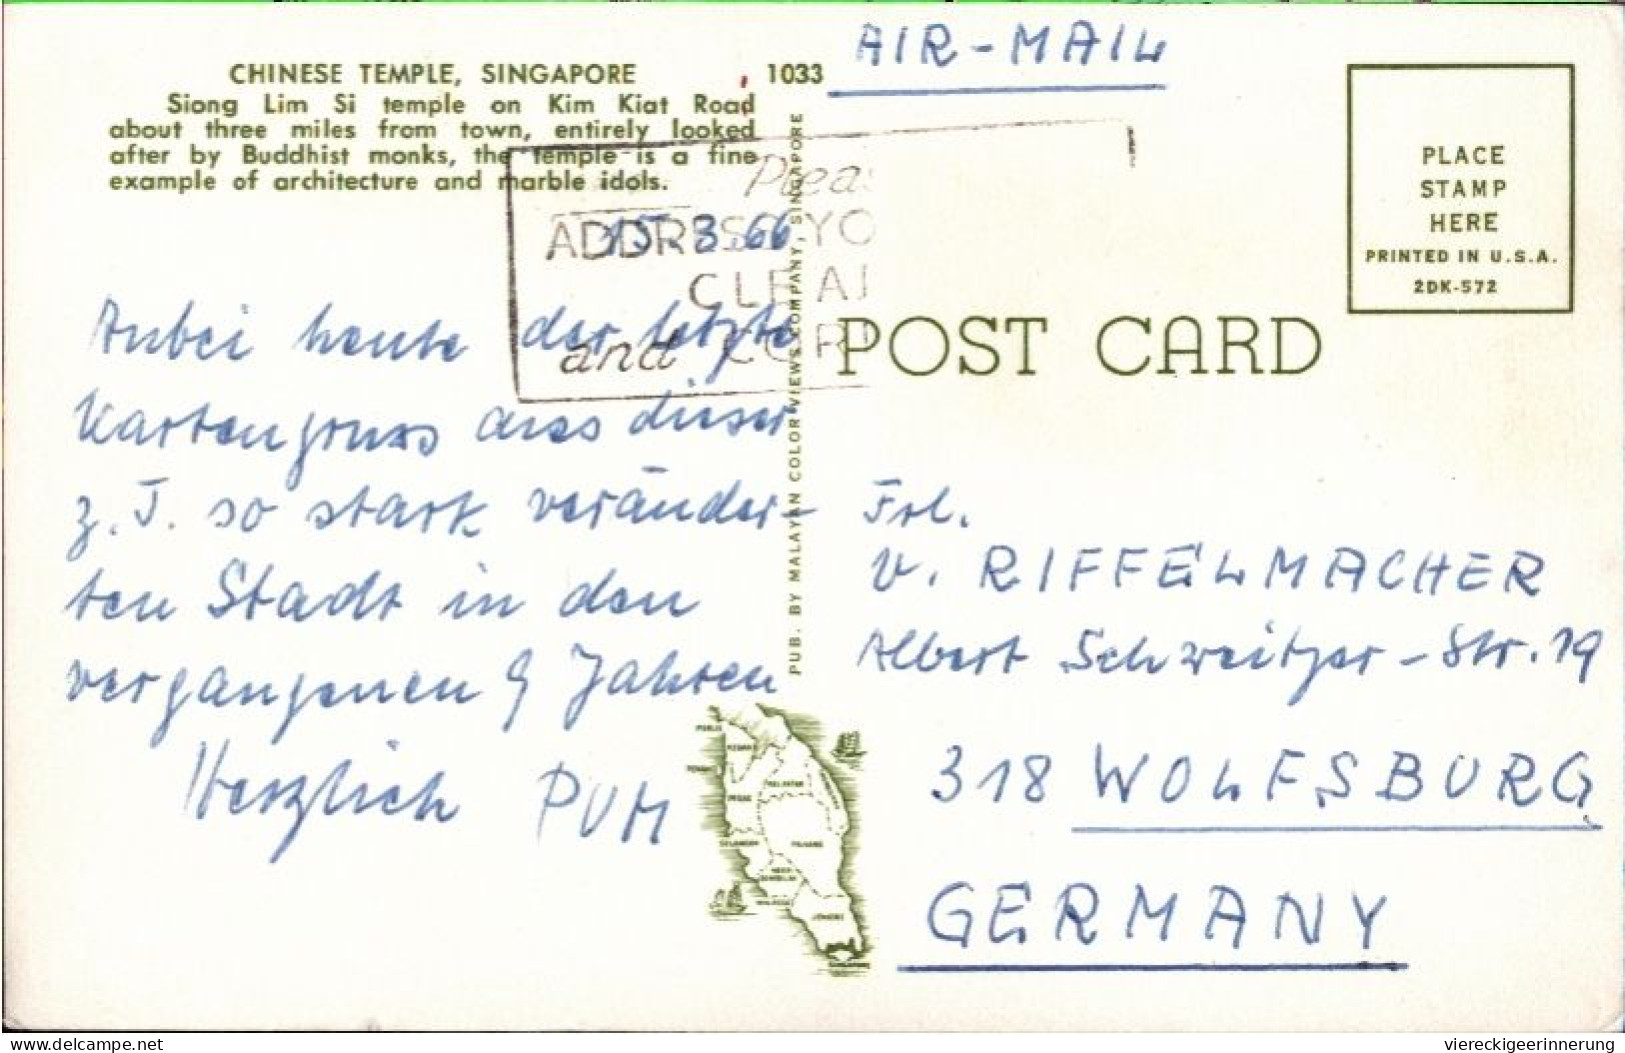 AIR-MAIL
CHINESE TEMPLE, SINGAPORE
1033
Siong Lim Si temple on Kim Kiat Road
about three miles from town, entirely looked
after by Buddhist monks, the temple is a fine
example of architecture and marble idols.
Pleas
ADDRESS YO
CLEA
and COR
15.3.66
Anbei heute der letzte
Kartengruss aus dieser
z. T. so stark veränder-
ten Stadt in den
vergangenen 9 Jahren
Herzlich PUM
PUB. BY MALAYAN COLOR VIEWS COMPANY, SINGAPORE
PLACE
STAMP
HERE
PRINTED IN U.S.A.
2DK-572
POST CARD
Frl.
v. RIFFELMACHER
Albert Schweitzer-Str. 19
318 WOLFSBURG
GERMANY
PERLIS
KEDAH
KELANTAN
PERAK
PAHANG
SELANGOR
NEGRI
SEMBILAN
MALACCA
JOHORE
SINGAPORE
www.delcampe.net
viereckigeerinnerung